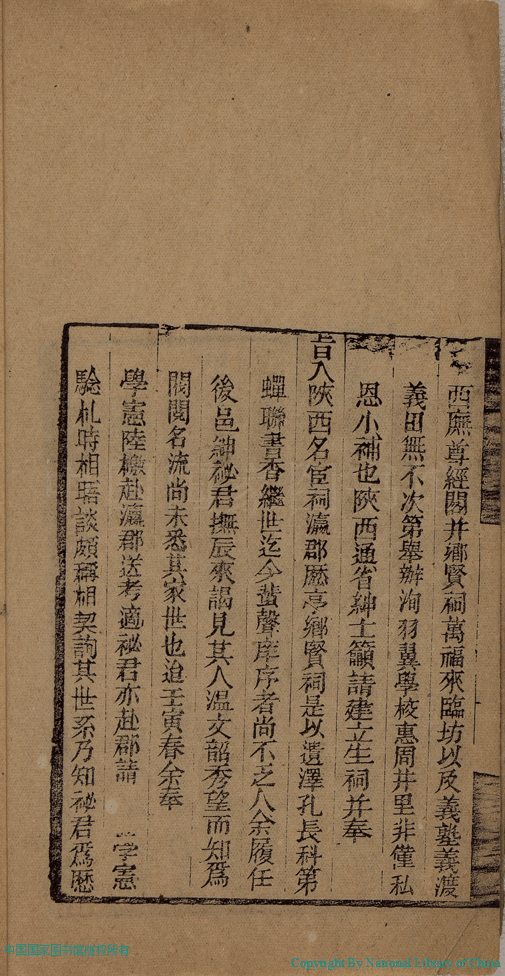 西廡尊經閣并鄉賢祠萬福來臨坊以及義塾義渡
義田無不次第舉辦洵羽翼學校惠周井里非僅私
恩小補也陝西通省紳士籲請建立生祠并奉
旨入陝西名宦祠瀛郡歷亭鄉賢祠是以遺澤孔長科第
蟬聯書香繼世迄今蜚聲庠序者尚不乏人余履任
後邑紳祕君撫辰來謁見其人溫文韶秀望而知為
閥閱名流尚未悉其家世也迨壬寅春余奉
學憲陸檄赴瀛郡送考適祕君亦赴郡請 學憲
驗札時相晤談頗稱相契詢其世系乃知祕君為歷
中国国家图书馆版权所有
Copyright By National Library of China